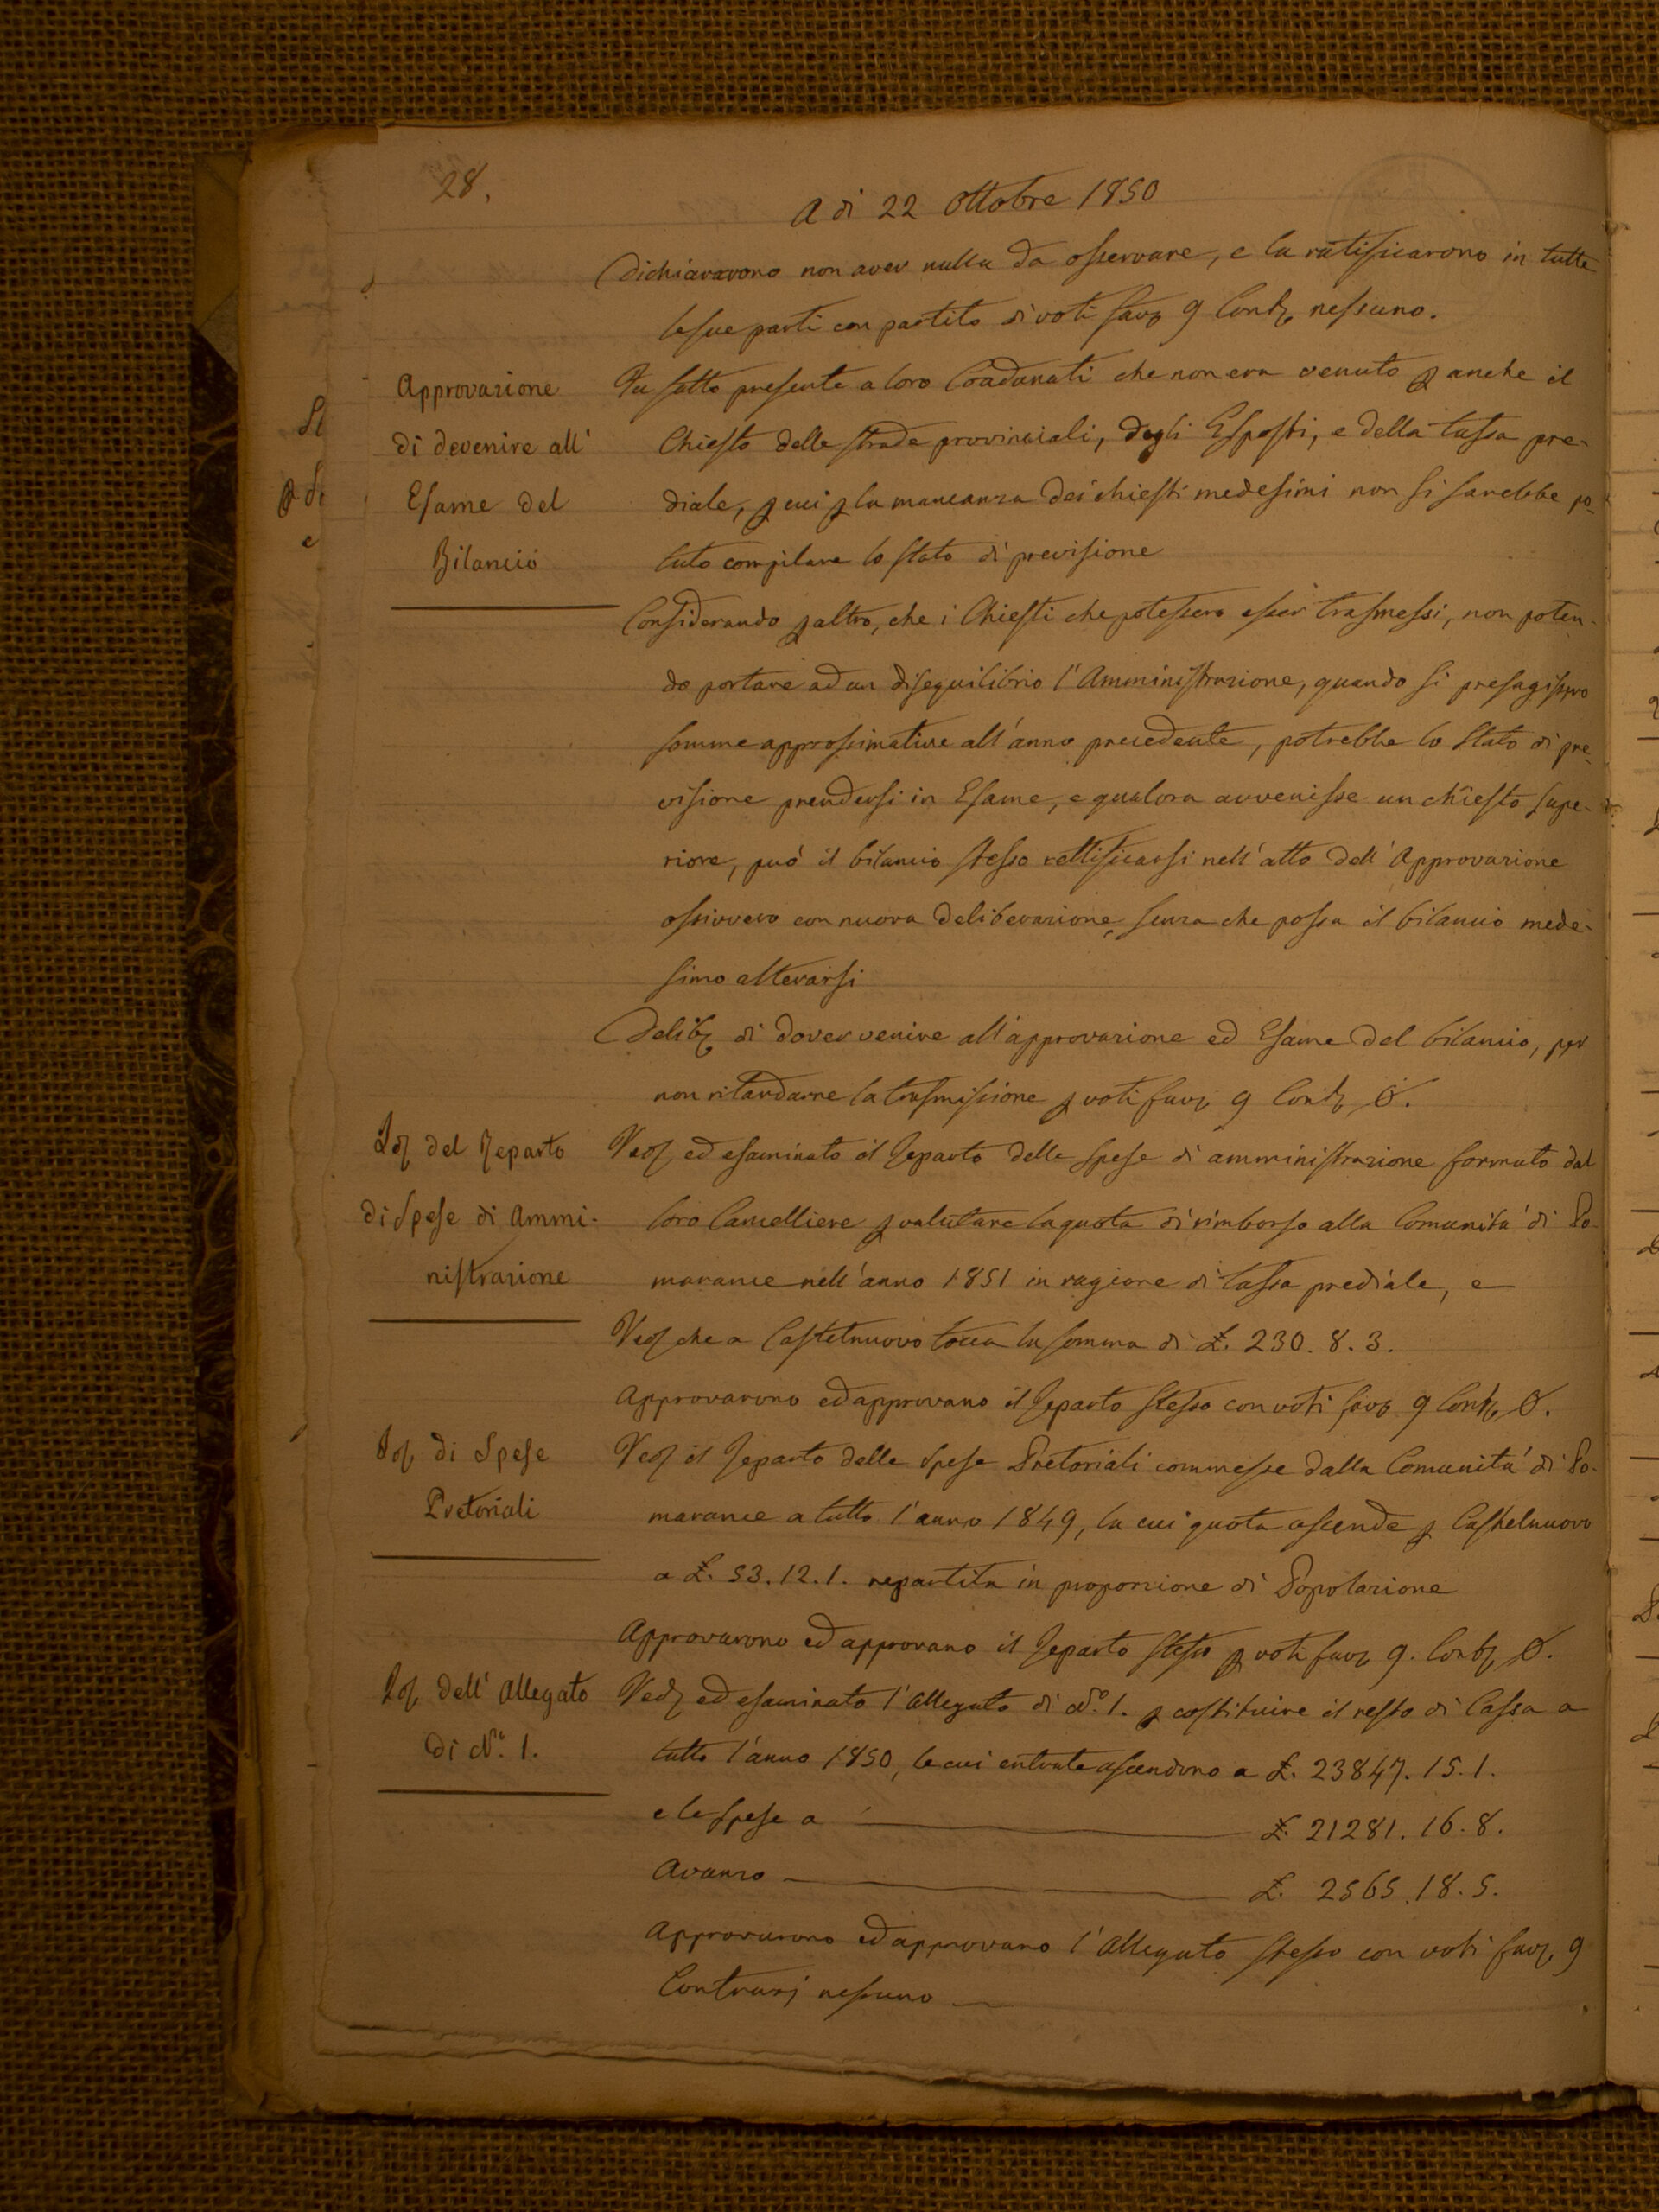 28.
A di 22 Ottobre 1850
Dichiararono non aver nulla da osservare, e la ratificarono in tutte
le sue parti con partito di voti fav. 9 Contr. nessuno.
Approvazione
di devenire all'
Esame del
Bilancio
Fu fatto presente a loro Coadunati che non era venuto p anche il
Chiesto delle strade provinciali, degli Esposti, e della tassa pre-
diale, p cui p la mancanza dei chiesti medesimi non si sarebbe po-
tuto compilare lo stato di previsione
Considerando p altro, che i Chiesti che potessero esser trasmessi, non poten-
do portare ad un disequilibrio l'Amministrazione, quando si presagissero
somme approssimative all'anno precedente, potrebbe lo Stato di pre-
visione prendersi in Esame, e qualora avvenisse un chiesto supe-
riore, può il bilancio stesso rettificarsi nell'atto dell'Approvazione
ossivvero con nuova deliberazione, senza che possa il bilancio mede-
simo alterarsi
Delib. di dover venire all'approvazione ed Esame del bilancio, per
non ritardarne la trasmissione p voti fav. 9 Contr. 0.
del Reparto
di Spese di Ammi-
nistrazione
Ved. ed esaminato il Reparto delle spese di amministrazione formato dal
loro Cancelliere p valutare la quota di rimborso alla Comunità di Po-
marance nell'anno 1851 in ragione di tassa prediale, e
Ved. che a Castelnuovo tocca la somma di £. 230. 8. 3.
Approvarono ed approvano il Reparto stesso con voti fav. 9 Contr. 0.
di Spese
Pretoriali
Ved. il Reparto delle Spese Pretoriali commesse dalla Comunità di Po-
marance a tutto l'anno 1849, la cui quota ascende p Castelnuovo
a £. 53. 12. 1. repartita in proporzione di Popolazione
Approvarono ed approvano il Reparto stesso p voti fav. 9. Contr. 0.
dell'Allegato
di N.º 1.
Ved. ed esaminato l'allegato di N.º 1. p costituire il resto di Cassa a
tutto l'anno 1850, le cui entrate ascendono a £. 23847. 15. 1.
e le spese a £. 21281. 16. 8.
Avanzo £. 2565. 18. 5.
Approvarono ed approvano l'Allegato stesso con voti fav. 9
Contrarj nessuno